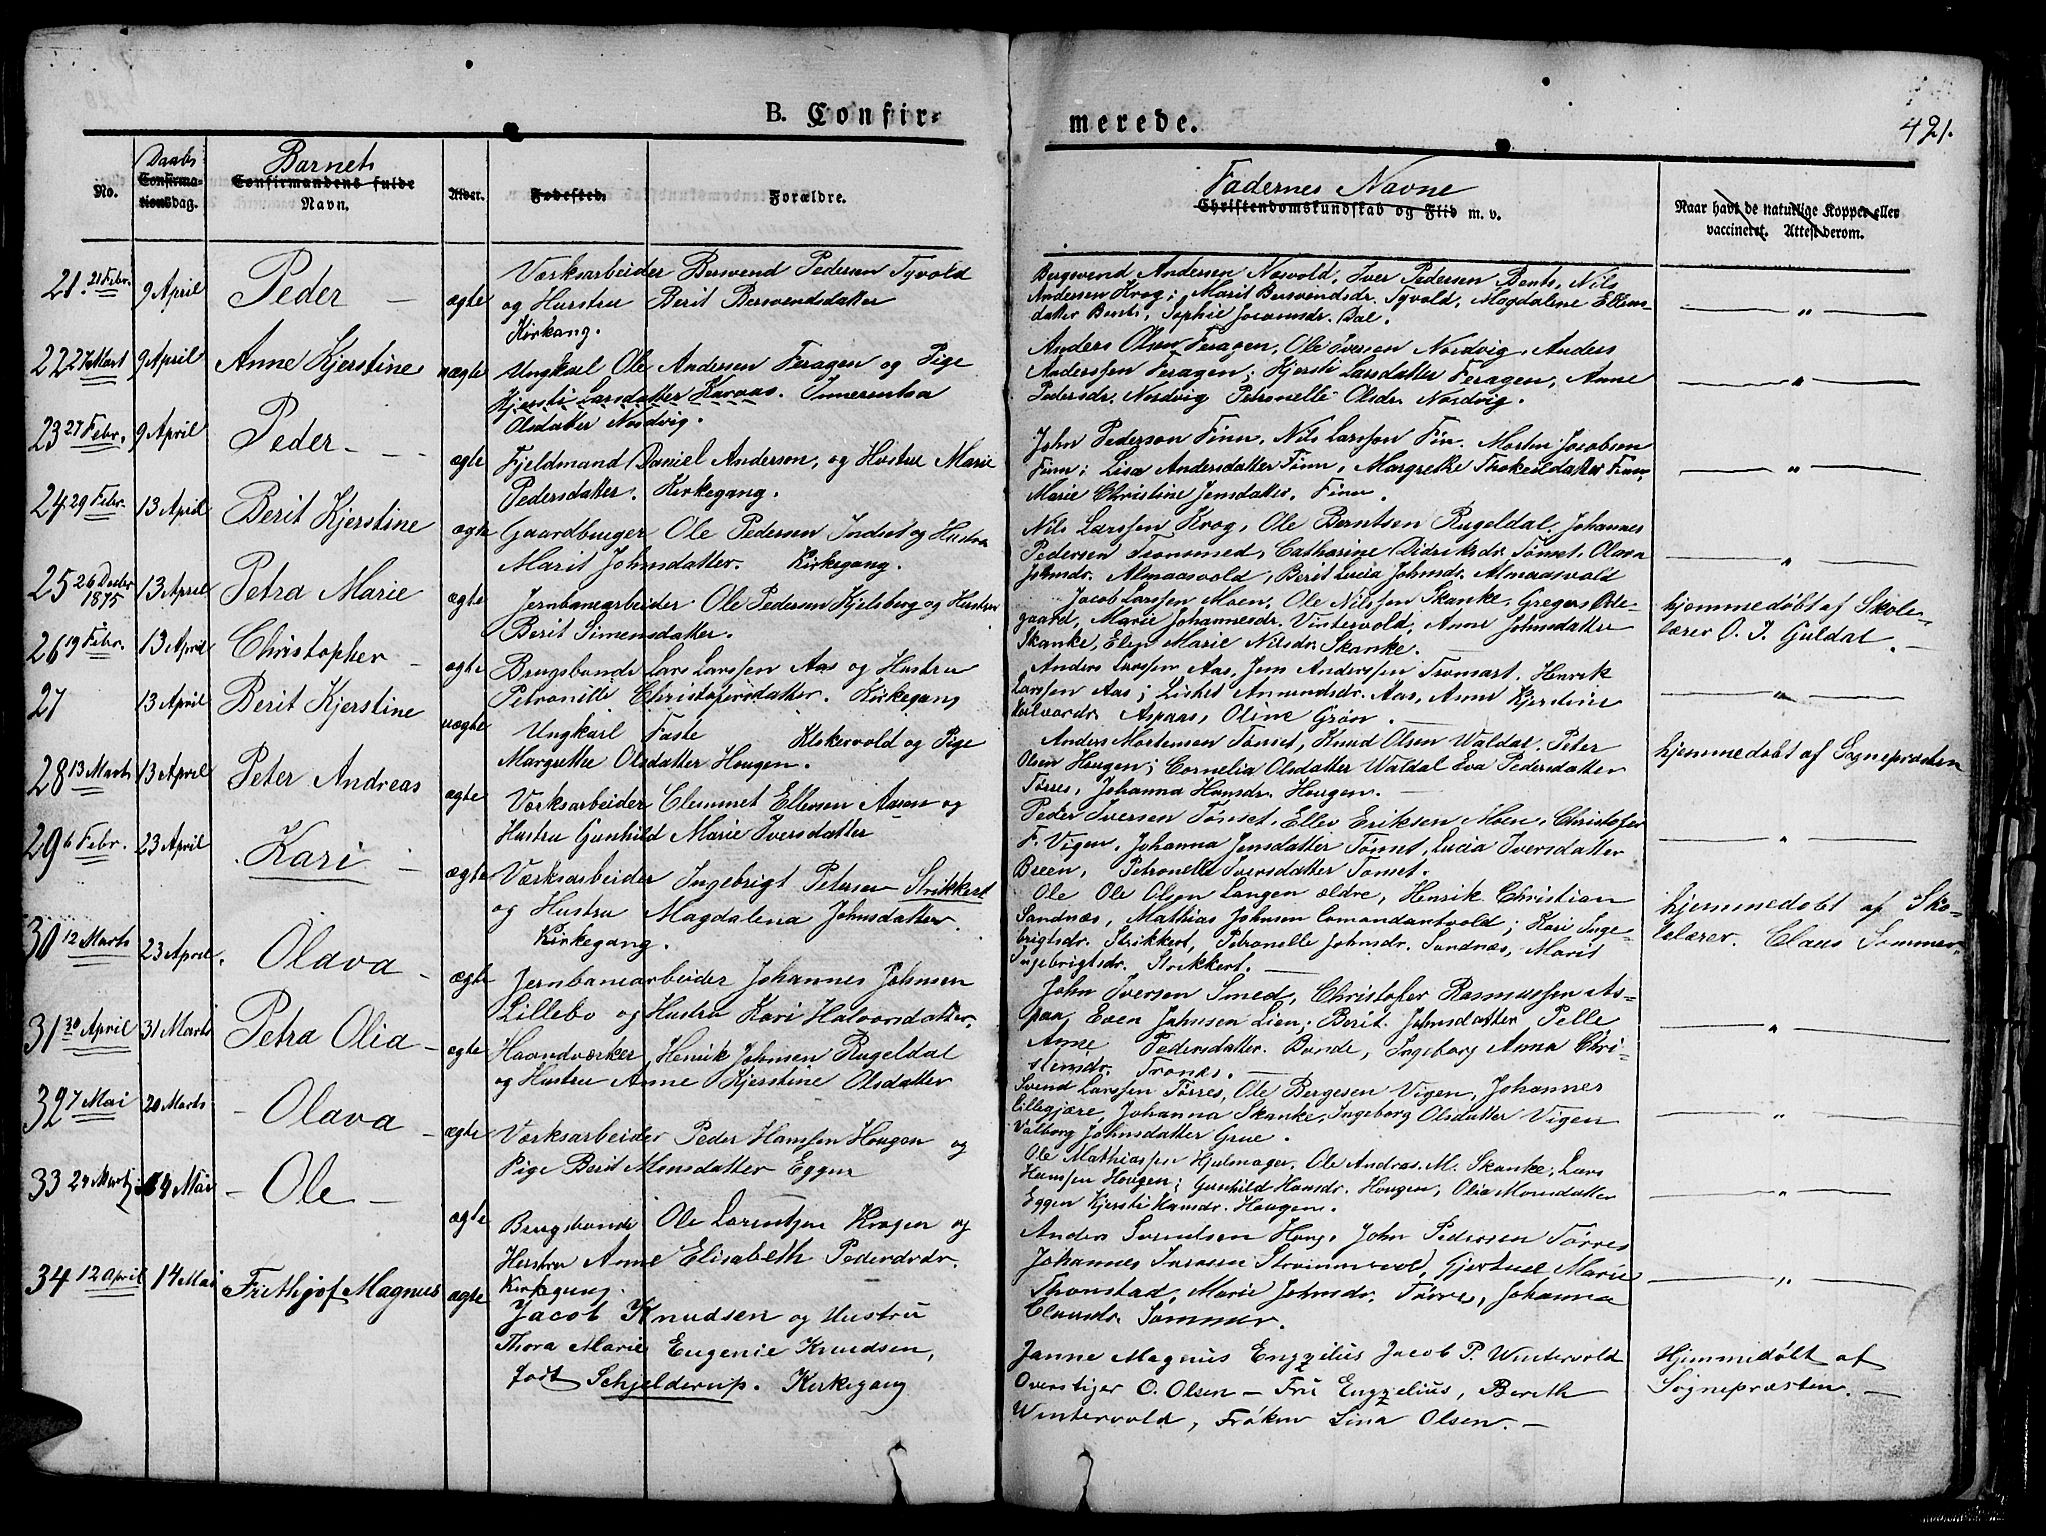 B. Confirmerede.
421.
No.
Daabs
Confirmationsdag.
Barnets
Confirmandens fulde
Navn.
Alder.
Fødested.
Forældre.
Fadernes Navne
Christendomskundskab og Flid m. v.
Naar havt de naturlige Kopper eller
vaccineret. Attest derom.
21. 21 Febr. 9 April Peder — ægte
Værksarbeider Bersvend Pedersen Tyvold
og Hustru Berit Bersvendsdatter
Kirkegang.
Bergsvend Andersen Nosvold, Iver Pedersen Bents, Nils
Andersen Krog; Marit Bersvendsdr. Tyvold, Magdalene Ellens-
datter Bents, Sophie Joramsdr. Dal.
— " —
22 27 Mart 9 April Anne Kjerstine uægte
Ungkarl Ole Andersen Feragen og Pige
Kjersti Larsdatter Havaas.
Olsdatter Nordvig.
Anders Olsen Feragen, Ole Iversen Nordvig, Anders
Anderssen Feragen; Kjersti Larsdatter Feragen, Anne
Pedersdr. Nordvig Petronelle Olsdr. Nordvig.
— " —
23 27 Febr. 9 April Peder — — — ægte
Fjeldmand Daniel Andersen, og Hustru Marie
Pedersdatter. Kirkegang.
John Pederson Finn, Nils Larssen Fin. Morten Jacobsen
Finn; Lisa Andersdatter Finn, Margrethe Thokeildatter Finn,
Marie Christine Jensdatter. Finn.
— " —
24 29 Febr. 13 April Berit Kjerstine ægte
Gaardbruger Ole Pedersen Indset og Hustru
Marit Johnsdatter. Kirkegang.
Nils Larssen Krog, Ole Berntsen Rugeldal. Johannes
Pedersen Tronsmed, Catharine Didriksdr. Tønset, Olava
Johnsdr. Almaasvold, Berit Lucia Johnsdr. Almaasvold
— " —
25 26 Decbr 1875 13 April Petra Marie ægte
Jernbanearbeider Ole Pedersen Kjelsberg og Hustru
Berit Simensdatter.
Jacob Larssen Moen, Ole Nilssen Skanke, Gregers Øde-
gaard, Marie Johannesdr. Vintervold, Anne Johnsdatter
Skanke, Elen Marie Nilsdr. Skanke.
hjemmedøbt af Skole-
lærer O. J. Guldal.
26 9 Febr. 13 April Christopher — ægte
Brugsbonde Lars Larssen Aas og Hustru
Petronille Christofersdatter. Kirkegang
Anders Larssen Aas, Jens Anderssen Tronsart. Henrik
Larssen Aas; Lisbet Amundsdr. Aas, Anne Kjerstine
Halvordr. Aspaas, Oline Grøn. —
— " —
27 13 April Berit Kjerstine uægte
Ungkarl Faste Klokervold og Pige
Margrethe Olsdatter Hougen.
Anders Mortensen Tønset, Knud Olsen Waldal. Peter
Olsen Hougen; Cornelia Olsdatter Waldal Eva Pedersdatter
Tørres, Johanna Hansdr. Hougen. —
hjemmedøbt af Sognepræsten
28 13 Marts 13 April Peter Andreas ægte
Værksarbeider Clemmet Ellevsen Aasen og
Hustru Gunhild Marie Iversdatter
Peder Iversen Tønset, Ellev Eriksen Moen, Christofer
F. Vigen, Johanna Jensdatter Tønset, Lucia Iversdatter
Breen, Petronelle Iversdatter Tønset.
— " —
29 6 Febr. 23 April Kari — ægte
Værksarbeider Ingebrigt Petersen Strikkert
og Hustru Magdalena Johnsdatter.
Kirkegang.
Ole Ole Olsen Langen ældre, Henrik Christian
Sandnæs, Mathias Johnsen Comandantvold; Kari Inge-
brigtsdr. Strikkert, Petronelle Johnsdr. Sandnæs, Marit
Ingebrigtsdr. Strikkert. —
hjemmedøbt af Sko-
lelærer. Claus Sommer.
30 12 Marts 23 April. Olava — ægte
Jernbanearbeider Johannes Johnsen
Lillebo og Hustru Kari Halvorsdatter.
John Iversen Smed, Christofer Rasmussen As-
paa, Even Johnsen Lien; Berit Johnsdatter Pelle
Anne Pedersdatter. Bonde, Ingeborg Anna Chri-
stensdr. Trones. —
— " —
31 30 April 31 Marts Petra Olia — ægte
Haandværker Henrik Johnsen Rugeldal
og Hustru Anne Kjerstine Olsdatter
Svend Larssen Tørres, Ole Bergesen Vigen, Johannes
Lillegjære, Johanna Skanke, Ingeborg Olsdatter Vigen
Valborg Johnsdatter Grue.
— " —
32 7 Mai 20 Marts — Olava — ægte
Værksarbeider Peder Hanssen Hougen og
Pige Berit Monsdatter Eggen
Ole Mathiassen Hjulmager, Ole Andras. M. Skanke, Lars
Hanssen Hougen; Gunhild Hansdr. Hougen, Olia Monsdatter
Eggen Kjersti Hansdr. Hougen.
— " —
33 24 Marts 14 Mai — Ole — ægte
Brugsbonde Ole Larentsen Kragen og
Hustru Anne Elisabeth Pedersdr.
Kirkegang.
Anders Svendsen Houg, John Pedersen Tørres
Johannes Strømmevold, Gjertrud Marie
Thonstad, Marie Johnsdr. Tørres, Johanna
Clausdr. Sommer.
— " —
34 12 April 14 Mai Frithjof Magnus ægte
Jacob Knudsen og Hustru
Thora Marie Eugenie Knudsen,
født Schjelderup. Kirkegang
Janne Magnus Engzelius Jacob P. Wintervold
Overstiger O. Olsen — Fru Engzelius, Bereth
Wintervold, Frøken Lina Olsen. —
Hjemmedøbt af
Sognepræsten. —